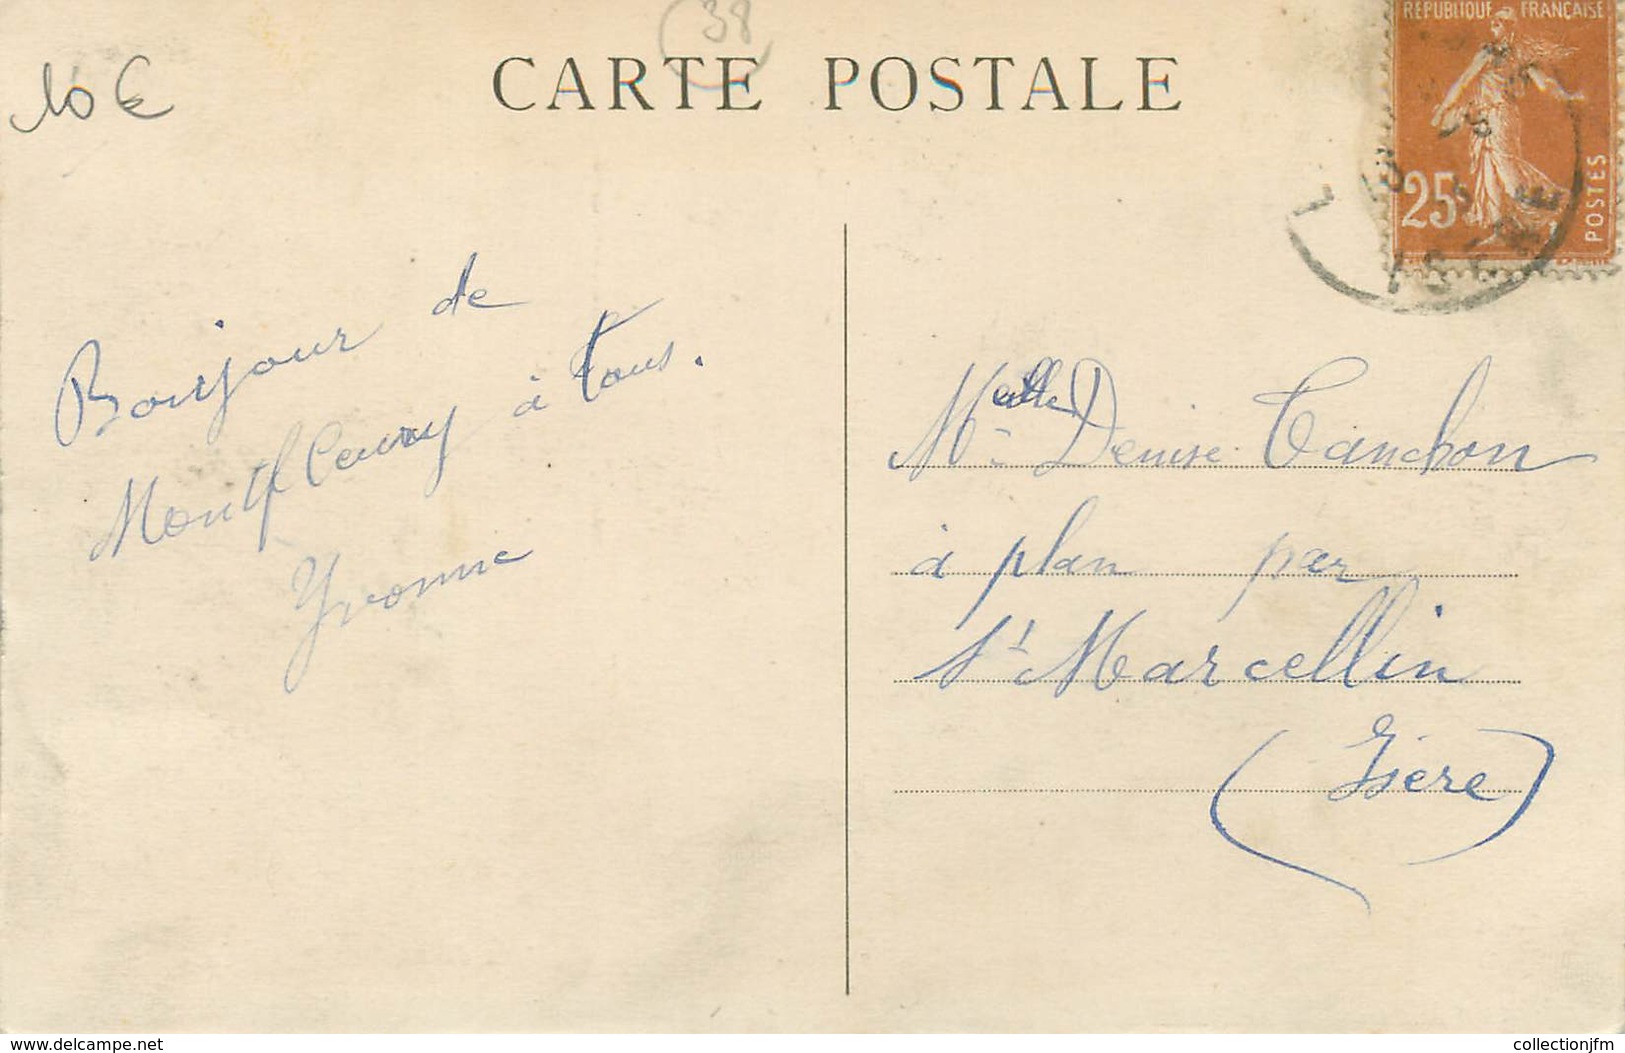 38
10 €
CARTE POSTALE
REPUBLIQUE FRANÇAISE
25
POSTES
ISERE
Bonjour de
Montfleury à tous.
Yvonne
Melle Denise Tanchon
à plan par
St Marcellin
(Isère)
www.delcampe.net
collectionjfm